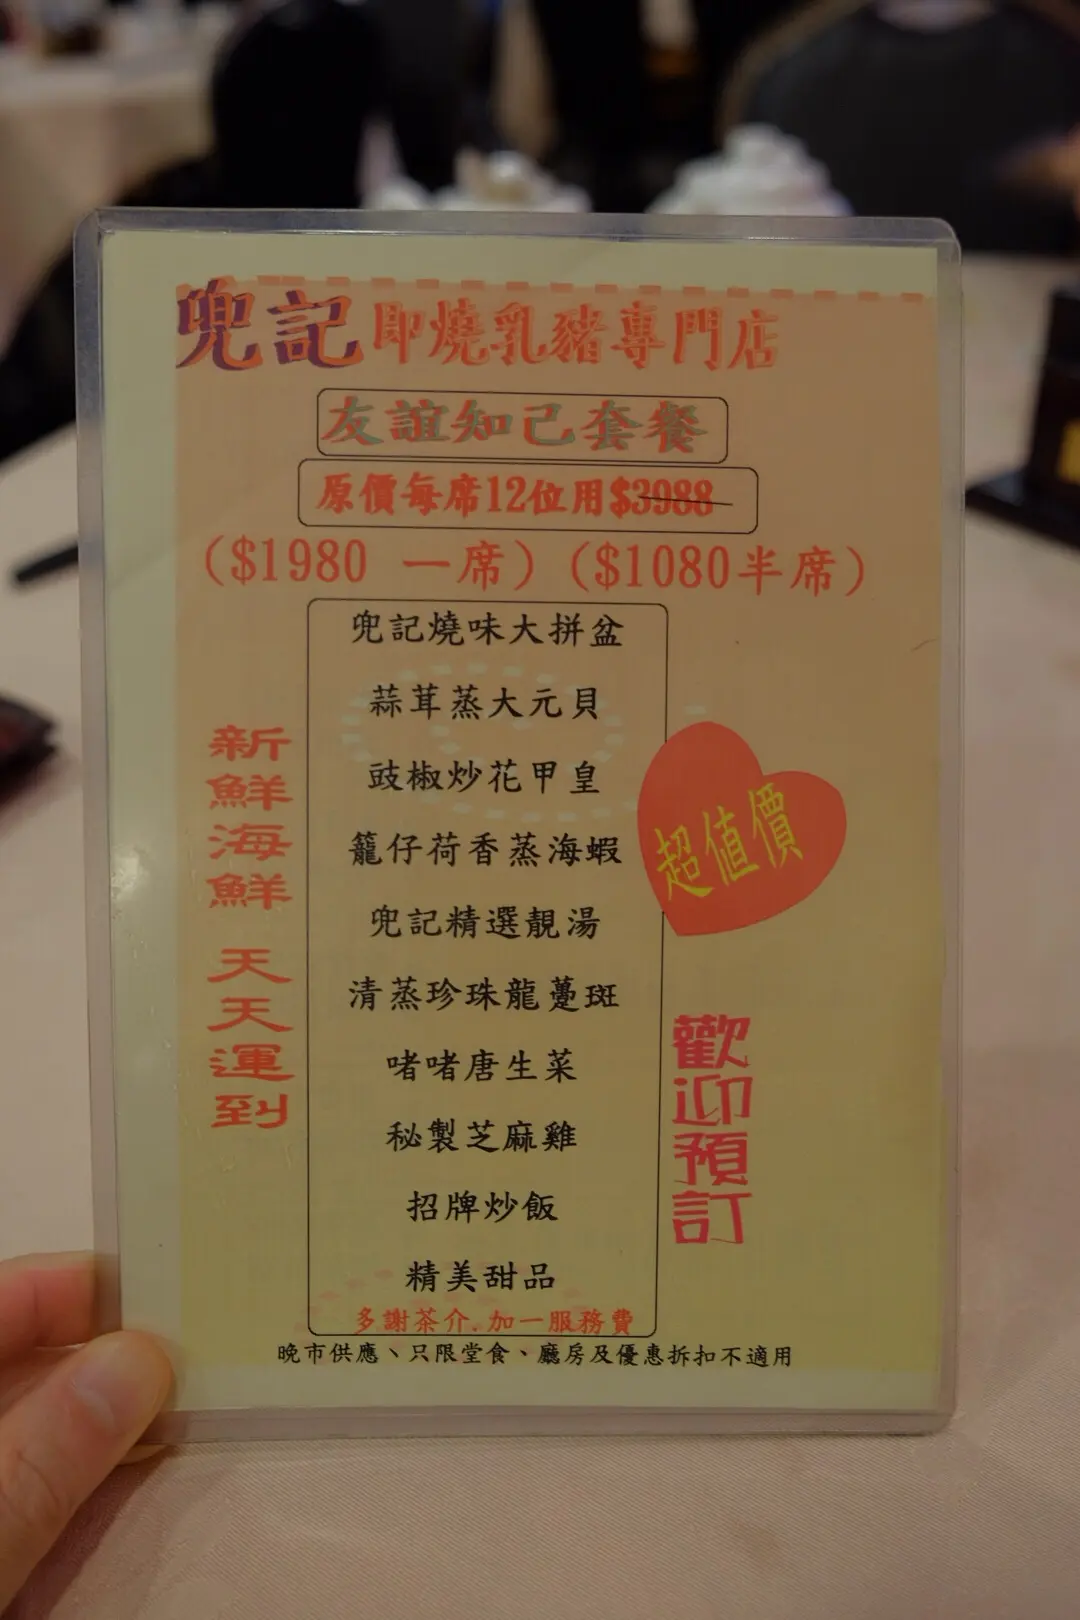 兜記即燒乳豬專門店
友誼知己套餐
原價每席12位用$3988
($1980 一席) ($1080半席)
兜記燒味大拼盆
蒜茸蒸大元貝
豉椒炒花甲皇
籠仔荷香蒸海蝦
兜記精選靚湯
清蒸珍珠龍躉斑
啫啫唐生菜
秘製芝麻雞
招牌炒飯
精美甜品
多謝茶介.加一服務費
晚市供應、只限堂食、廳房及優惠拆扣不適用
新鮮海鮮 天天運到
超值價
歡迎預訂